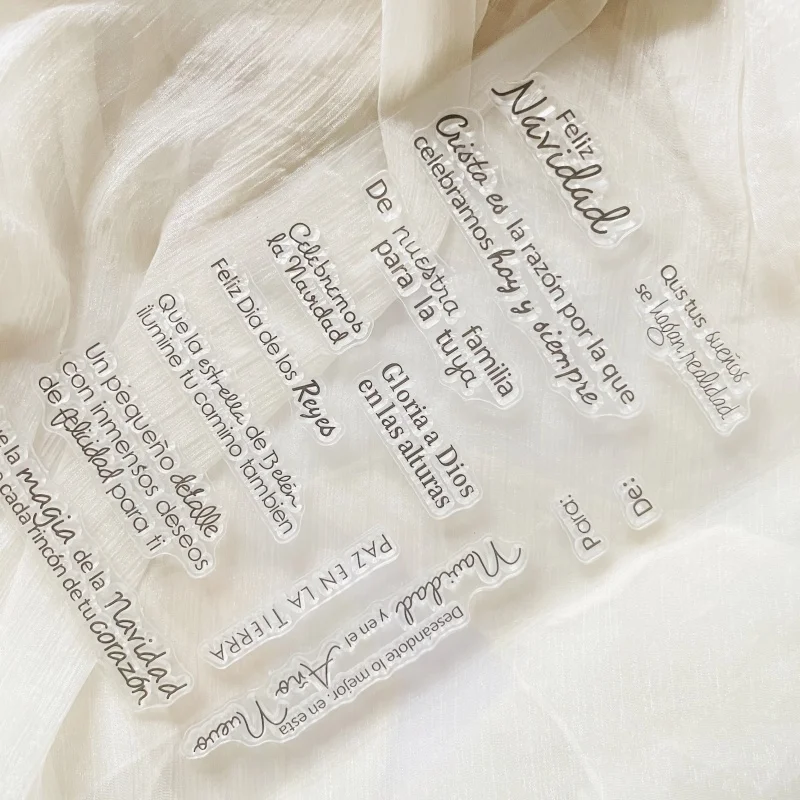 Feliz
Navidad
Crista es la razón por la que
celebramos hoy y siempre
De nuestra familia
para la tuya
Celebremos
la Navidad
Feliz Dia de los Reyes
Que la estrella de Belén
ilumine tu camino también
Un pequeño detalle
con inmensos deseos
de felicidad para ti
la magia de la Navidad
cada rincón de tu corazón
Qus tus sueños
se hagan realidad
Gloria a Dios
en las alturas
De:
Para:
PAZ EN LA TIERRA
Deseándote lo mejor, en esta
Navidad y en el Año Nuevo